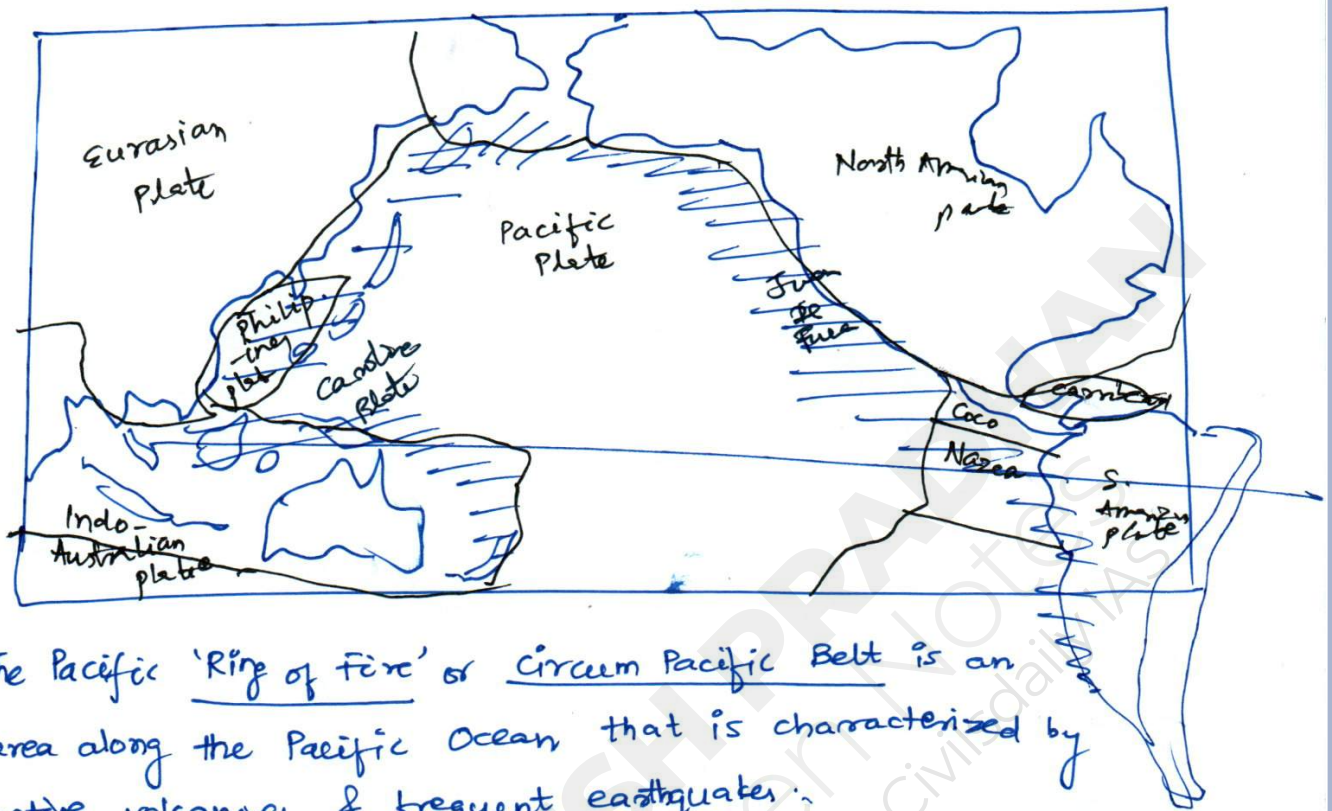 Eurasian
Plate
Pacific
Plate
North American
plate
Philip
-ines
plat
Caroline
Plate
Juan
De
Fuca
Coco
Nazca
Carribean
S.
American
plate
Indo-
Australian
plate
The Pacific 'Ring of Fire' or Circum Pacific Belt is an
area along the Pacific Ocean that is characterized by
active volcanoes & frequent earthquakes.
SH PRADHAN
en Notes
Civilsdaily IAS